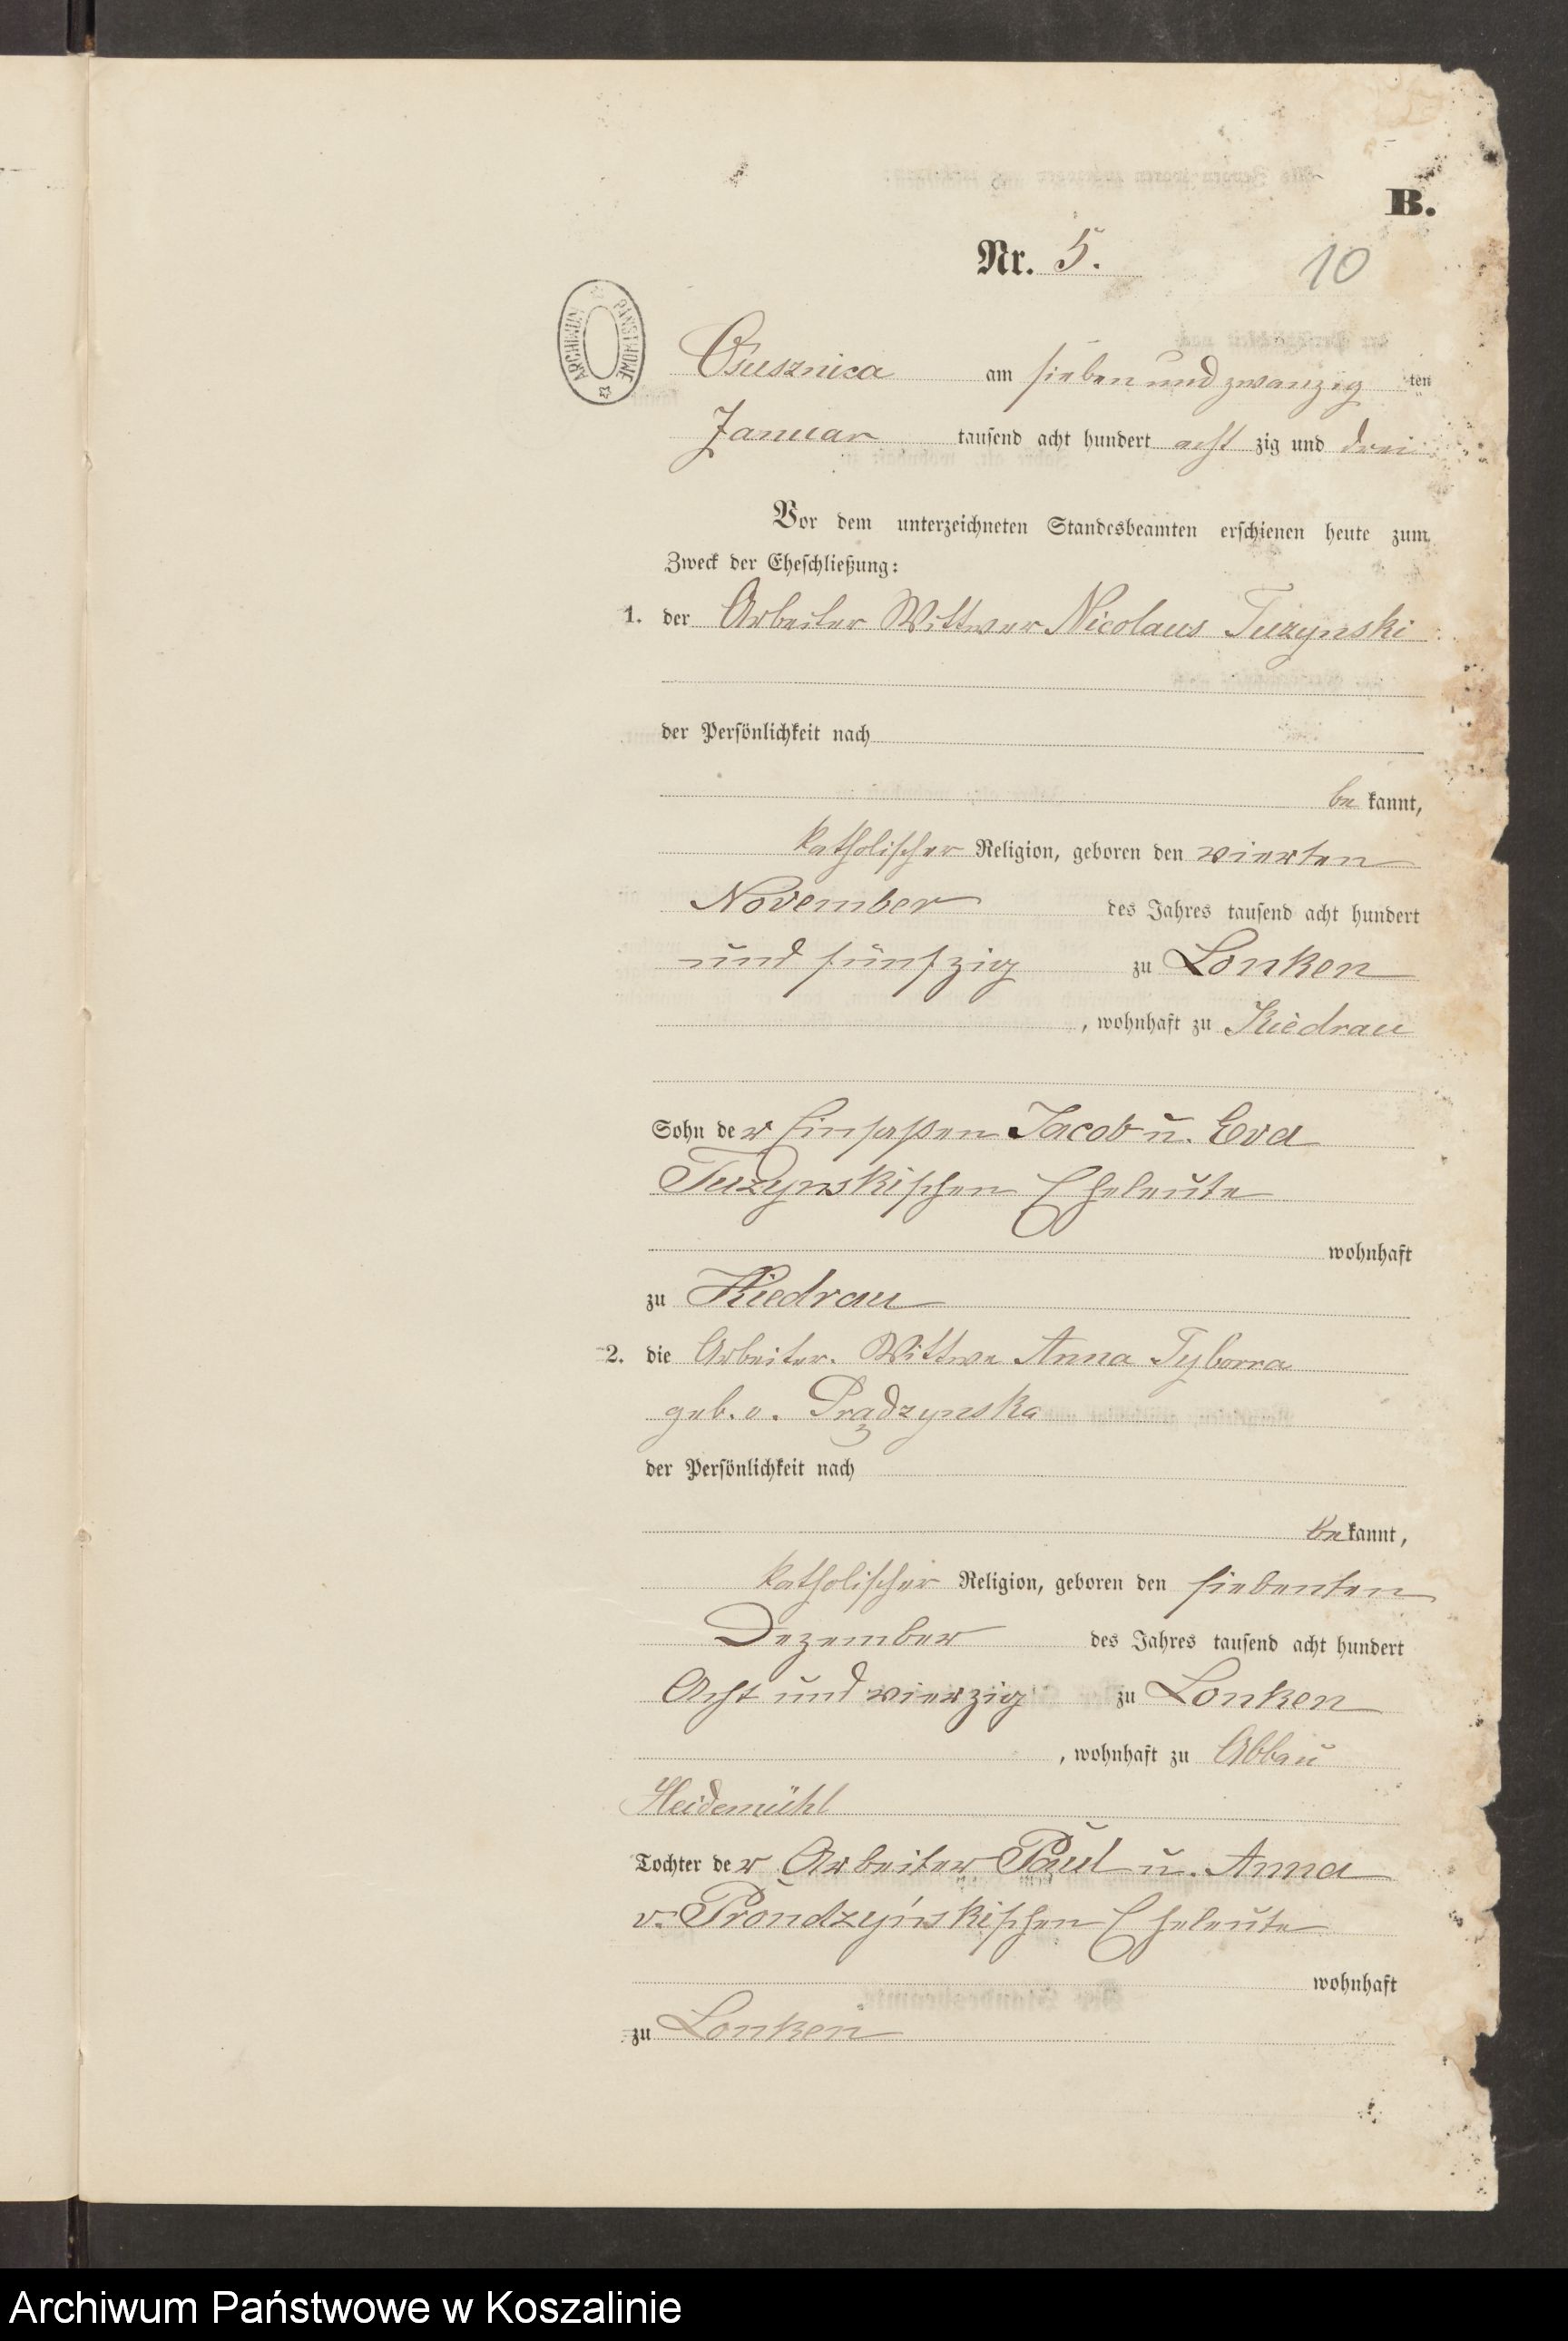 B.
Nr. 5.
10
ARCHIWUM PAŃSTWOWE
Ossusznica am sieben und zwanzig ten
Januar tausend acht hundert acht zig und drei
Vor dem unterzeichneten Standesbeamten erschienen heute zum
Zweck der Eheschließung:
1. der Arbeiter Wittwer Nicolaus Tuzynski
der Persönlichkeit nach
be kannt,
katholischer Religion, geboren den vierten
November des Jahres tausend acht hundert
und fünfzig zu Lonken
, wohnhaft zu Kiedrau
Sohn der Einsaßen Jacob u. Eva
Tuzynskischen Eheleute
wohnhaft
zu Kiedrau
2. die Arbeiter. Wittwe Anna Tyborra
geb. v. Prądzynska
der Persönlichkeit nach
be kannt,
katholischer Religion, geboren den siebenten
Dezember des Jahres tausend acht hundert
Acht und vierzig zu Lonken
, wohnhaft zu Abbau
Heidemühl
Tochter der Arbeiter Paul u. Anna
v. Prondzyńskischen Eheleute
wohnhaft
zu Lonken
Archiwum Państwowe w Koszalinie